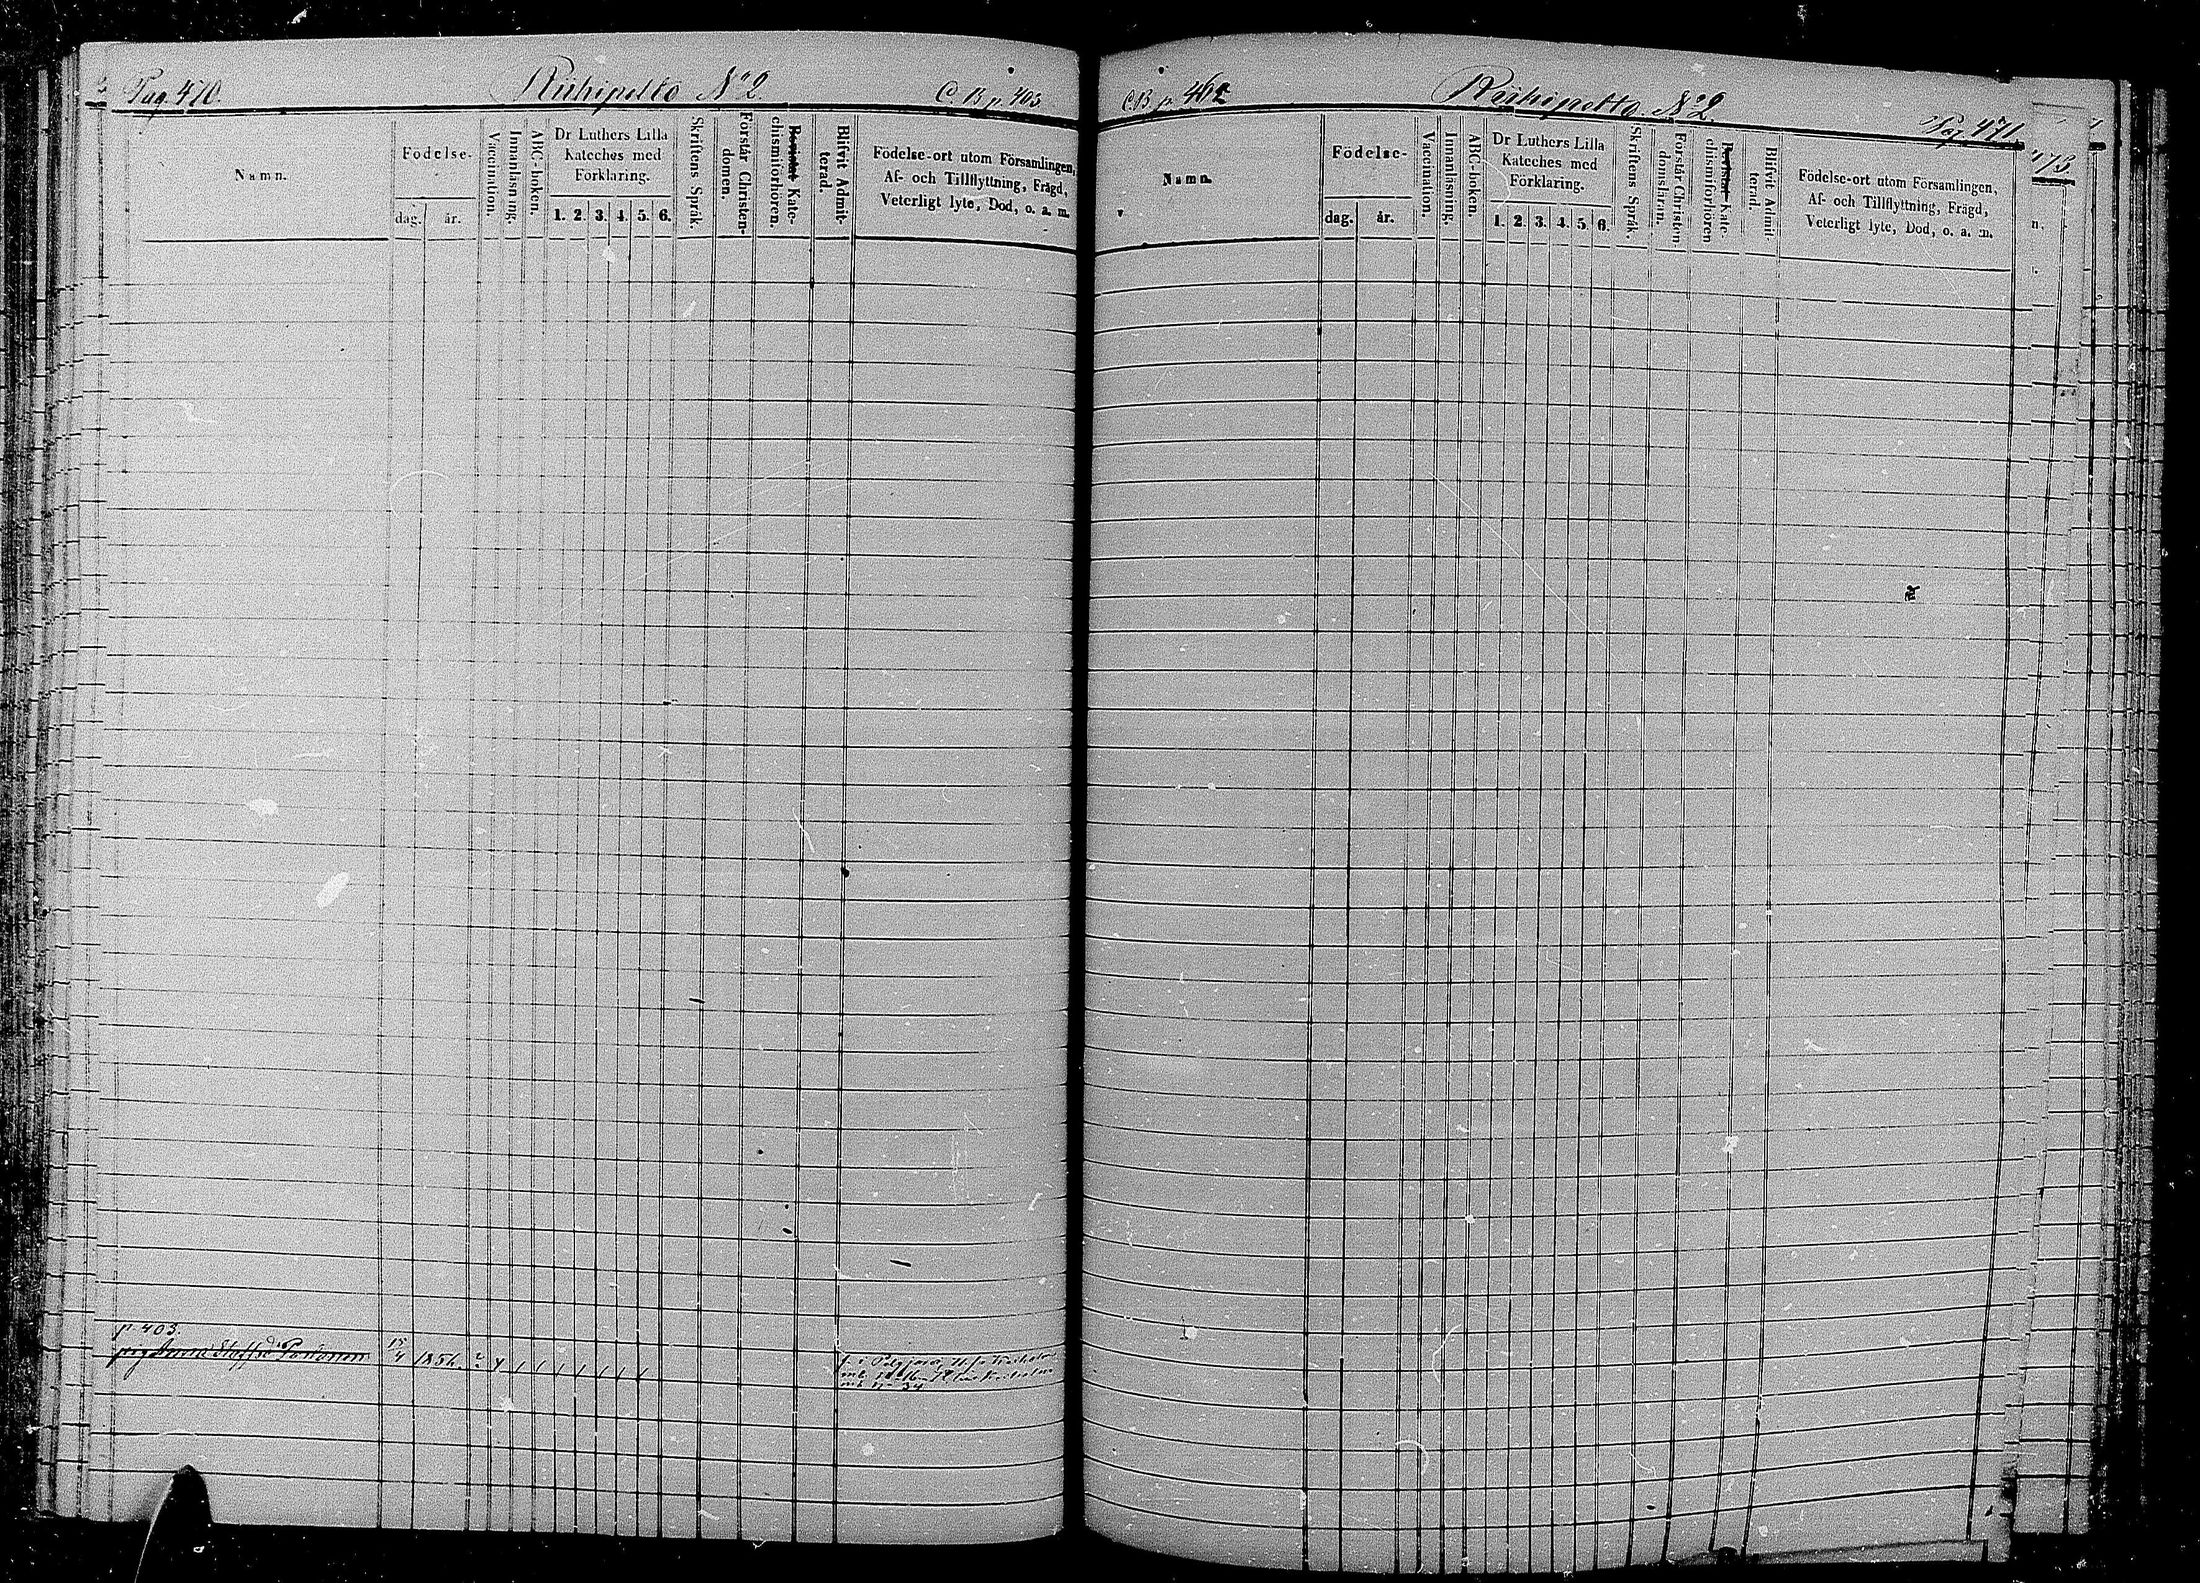 Pag 470.
Riihipelto No 2
C. B p. 403
Namn.
Födelse-
dag. år.
Vaccination.
Innanläsning.
ABC-boken.
Dr Luthers Lilla
Kateches med
Förklaring.
1. 2. 3. 4. 5. 6.
Skriftens Språk.
Förstår Christen-
domen.
Bevistat Kate-
chismiförhören.
Blifvit Admit-
terad.
Födelse-ort utom Församlingen,
Af- och Tillflyttning, Frägd,
Veterligt lyte, Död, o. a. m.
p. 403.
Anna Staffsd
15/4 1856
C.B p. 462
Riihipelto No 2.
Pag. 471
Namn.
Födelse-
dag. år.
Vaccination.
Innanläsning.
ABC-boken.
Dr Luthers Lilla
Kateches med
Förklaring.
1. 2. 3. 4. 5. 6.
Skriftens Språk.
Förstår Christen
domsläran.
Bevistat Kate-
chismiförhören
Blifvit Admit-
terad.
Födelse-ort utom Församlingen,
Af- och Tillflyttning, Frägd,
Veterligt lyte, Död, o. a. m.
473.
n.